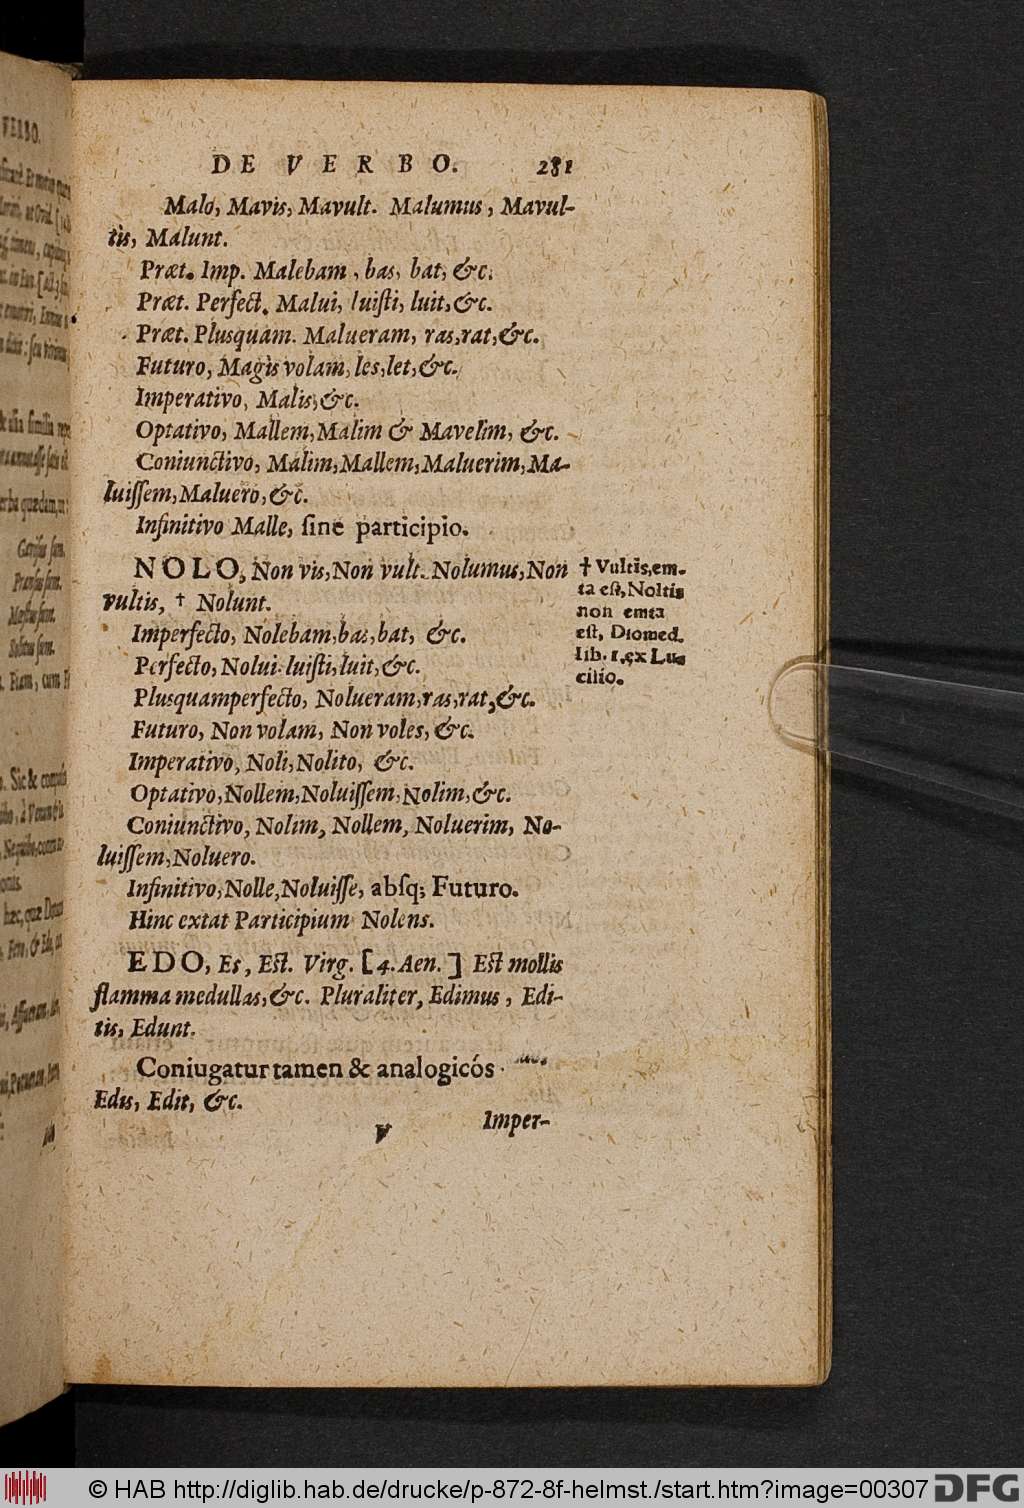 DE VERBO. 281
Malo, Mavis, Mavult. Malumus, Mavul-
tis, Malunt.
Præt. Imp. Malebam, bas, bat, &c.
Præt. Perfect. Malui, luisti, luit, &c.
Præt. Plusquam. Malueram, ras, rat, &c.
Futuro, Magis volam, les, let, &c.
Imperativo, Malis, &c.
Optativo, Mallem, Malim & Mavelim, &c.
Coniunctivo, Malim, Mallem, Maluerim, Ma-
luissem, Maluero, &c.
Infinitivo Malle, sine participio.
NOLO, Non vis, Non vult. Nolumus, Non
vultis, † Nolunt.
† Vultis, em-
ta est, Noltis
non emta
est, Diomed.
lib. 1. ex Lu-
cilio.
Imperfecto, Nolebam, bas, bat, &c.
Perfecto, Nolui. luisti, luit, &c.
Plusquamperfecto, Nolueram, ras, rat, &c.
Futuro, Non volam, Non voles, &c.
Imperativo, Noli, Nolito, &c.
Optativo, Nollem, Noluissem, Nolim, &c.
Coniunctivo, Nolim, Nollem, Noluerim, No-
luissem, Noluero.
Infinitivo, Nolle, Noluisse, absq; Futuro.
Hinc extat Participium Nolens.
EDO, Es, Est. Virg. [4. Aen.] Est mollis
flamma medullas, &c. Pluraliter, Edimus, Edi-
tis, Edunt.
Coniugatur tamen & analogicós
Edis, Edit, &c.
V Imper-
© HAB http://diglib.hab.de/drucke/p-872-8f-helmst./start.htm?image=00307 DFG